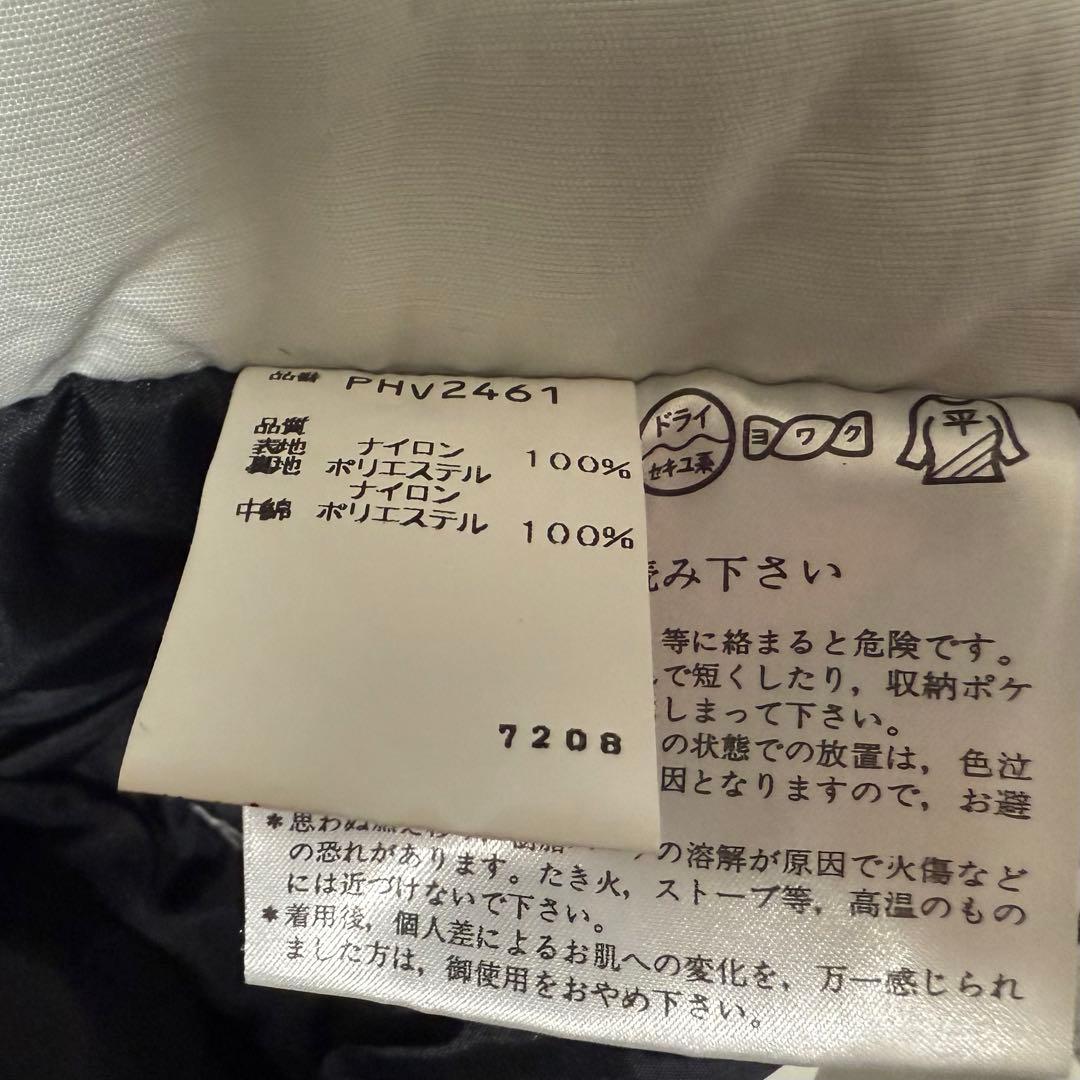 品番 PHV2461
品質
表地 ナイロン 100%
裏地 ポリエステル
ナイロン
中綿 ポリエステル 100%
7208
ドライ
セキユ系
ヨワク
平
読み下さい
等に絡まると危険です。
で短くしたり,収納ポケ
しまって下さい。
の状態での放置は,色泣
因となりますので,お避
*思わぬ
の溶解が原因で火傷など
の恐れがあります。たき火,ストーブ等,高温のもの
には近づけないで下さい。
*着用後,個人差によるお肌への変化を,万一感じられ
ました方は,御使用をおやめ下さい。